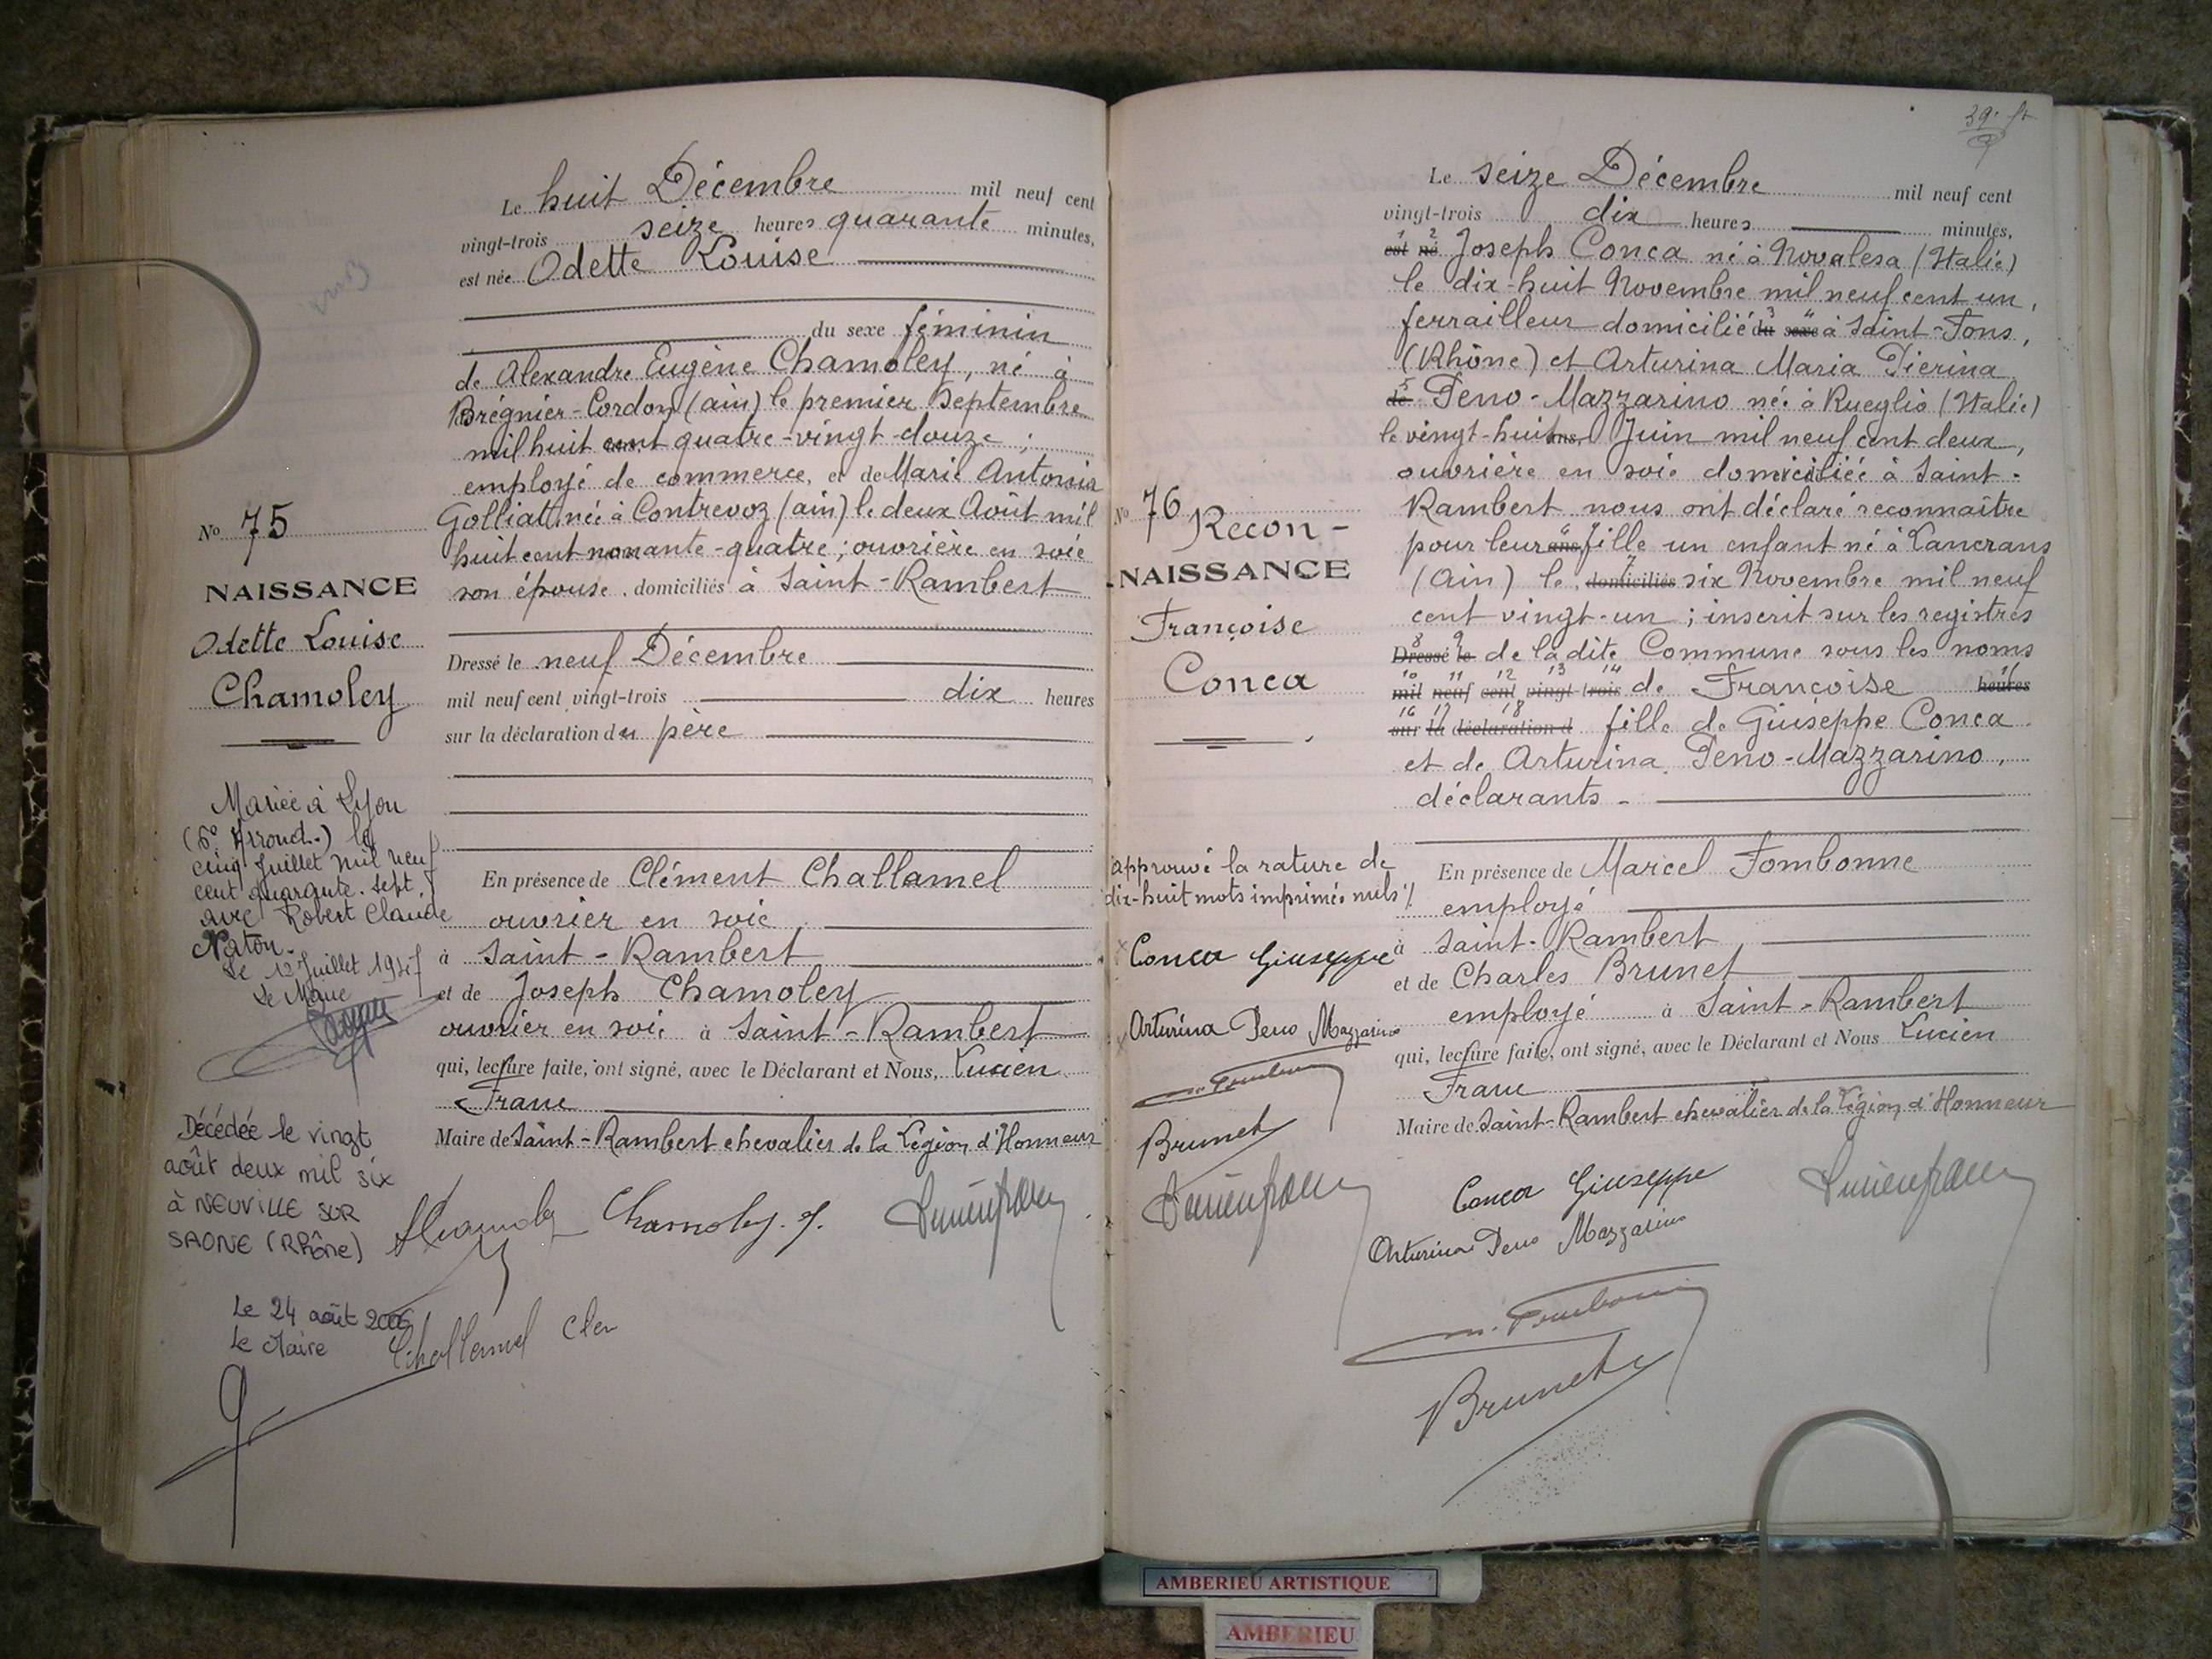 Le huit Décembre mil neuf cent
vingt-trois seize heures quarante minutes,
est née Odette Louise
du sexe féminin
de Alexandre Eugène Chamoley, né à
Brégnier-Cordon (ain) le premier Septembre
mil huit cent quatre-vingt-douze ;
employé de commerce, et de Marie Antonia
Golliat née à Contrevoz (ain) le deux Août mil
huit cent nonante-quatre ; ouvrière en soie
son épouse, domiciliés à Saint-Rambert
No 75
NAISSANCE
Odette Louise
Chamoley
Dressé le neuf Décembre
mil neuf cent vingt-trois dix heures
sur la déclaration du père
Mariée à Lyon
(6e Arrond.) le
cinq Juillet mil neuf
cent quarante-sept,
avec Robert Claude
Naton.
Le 12 Juillet 1947
Le Maire
En présence de Clément Challamel
ouvrier en soie
à Saint-Rambert
et de Joseph Chamoley
ouvrier en soie à Saint-Rambert
qui, lecture faite, ont signé, avec le Déclarant et Nous, Lucien
Franc
Maire de Saint-Rambert chevalier de la Légion d'Honneur
Décédée le vingt
août deux mil six
à NEUVILLE SUR
SAONE (Rhône)
Le 24 août 2006
Le Maire
Chamoley Chamoley. J. Lucien Franc
Challamel Clen
39.
Le seize Décembre mil neuf cent
vingt-trois dix heures minutes,
1 2
est né Joseph Conca né à Novalesa (Italie)
le dix-huit Novembre mil neuf cent un,
3 4
ferrailleur domicilié du sexe à Saint-Fons,
(Rhône) et Arturina Maria Pierina
5
de Peno-Mazzarino née à Rueglio (Italie)
le vingt-huit Juin mil neuf cent deux,
ouvrière en soie domiciliée à Saint-
Rambert nous ont déclaré reconnaître
6
pour leur ans, fille un enfant né à Lancrans
7
(Ain) le domiciliés six Novembre mil neuf
cent vingt-un ; inscrit sur les registres
8 9
Dressé le de la dite Commune sous les noms
10 11 12 13 14 15
mil neuf cent vingt-trois de Françoise heures
16 17 18
sur la déclaration d fille de Giuseppe Conca
et de Arturina Peno-Mazzarino,
déclarants.
No 76
Recon-
-NAISSANCE
Françoise
Conca
approuvé la rature de
dix-huit mots imprimés nuls
Conca Giuseppe
Arturina Peno Mazzarino
m. Fombonne
Brunet
Lucien Franc
En présence de Marcel Fombonne
employé
à Saint-Rambert
et de Charles Brunet
employé à Saint-Rambert
qui, lecture faite, ont signé, avec le Déclarant et Nous Lucien
Franc
Maire de Saint-Rambert chevalier de la Légion d'Honneur
Conca Giuseppe Lucien Franc
Arturina Peno Mazzarino
m. Fombonne
Brunet
AMBERIEU ARTISTIQUE
AMBERIEU